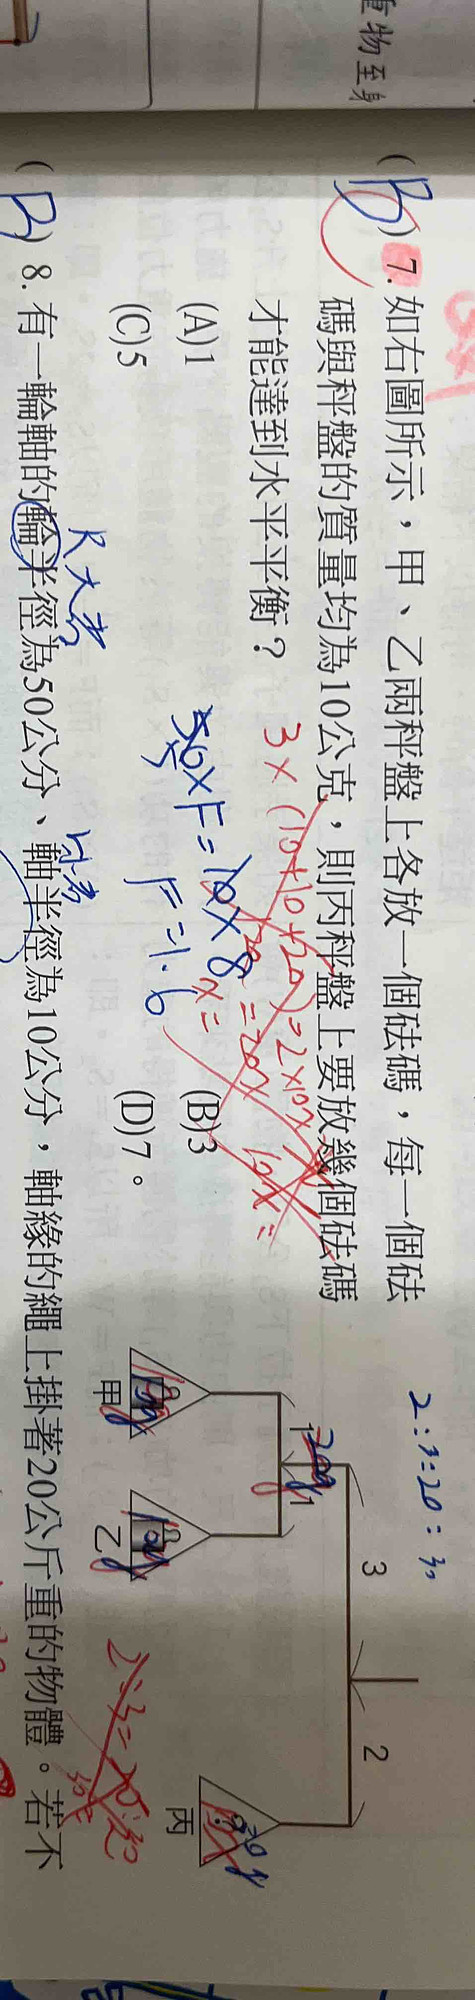 重物至身
(B) 7. 如右圖所示，甲、乙兩秤盤上各放一個砝碼，每一個砝
碼與秤盤的質量均為10公克，則丙秤盤上要放幾個砝碼
才能達到水平平衡？
(A)1 (B)3
(C)5 (D)7。
3×(10+10+20)=2×10x
10x=
50×F=10×8
F=1.6
2:3=20:30
3 2
1 20g 1
10g 10g
甲 乙 丙
(B) 8. 有一輪軸的輪半徑為50公分、軸半徑為10公分，軸緣的繩上掛著20公斤重的物體。若不